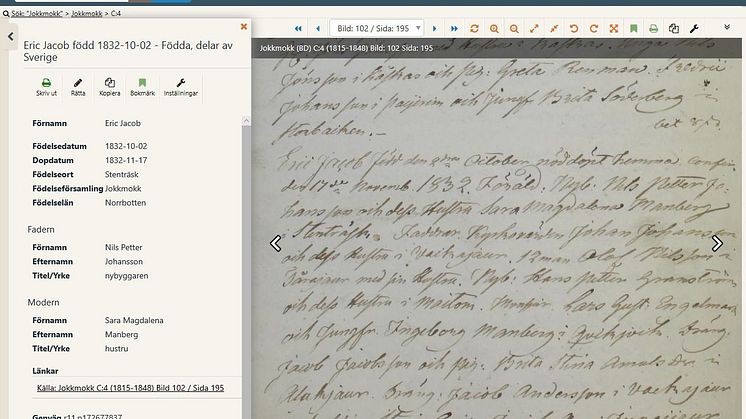 Sök: "Jokkmokk" > Jokkmokk > C:4
Eric Jacob född 1832-10-02 - Födda, delar av
Sverige
Skriv ut Rätta Kopiera Bokmärk Inställningar
Förnamn Eric Jacob
Födelsedatum 1832-10-02
Dopdatum 1832-11-17
Födelseort Stenträsk
Födelseförsamling Jokkmokk
Födelselän Norrbotten
Fadern
Förnamn Nils Petter
Efternamn Johansson
Titel/Yrke nybyggaren
Modern
Förnamn Sara Magdalena
Efternamn Manberg
Titel/Yrke hustru
Länkar
Källa: Jokkmokk C:4 (1815-1848) Bild 102 / Sida 195
Genväg r11.p172677837
Bild: 102 / Sida: 195
Jokkmokk (BD) C:4 (1815-1848) Bild: 102 Sida: 195
och Pig: Greta
Johansson i och Jungf. Brita Söderberg i
Storbacken.
Eric Jacob född den 2dra October, nöddöpt hemma
den 17de Novemb. 1832. Föräld: Nyb: Nils Petter Jo-
hansson och dess Hustru Sara Magdalena Manberg
i Stenträsk. Faddrar: Kyrkovärden Johan Johansson
och dess Hustru i Vaikijaur. Olof Nilsson i
med sin Hustru. Nyb: Hans Petter Granström
och dess Hustru i Lars Gust. Engelmark
och Jungfr. Ingeborg Manberg i Qvickjock. Dräng:
Jacob Jacobsson och Pig: Brita Stina
Dräng: Jacob Andersson i Vaikijaur